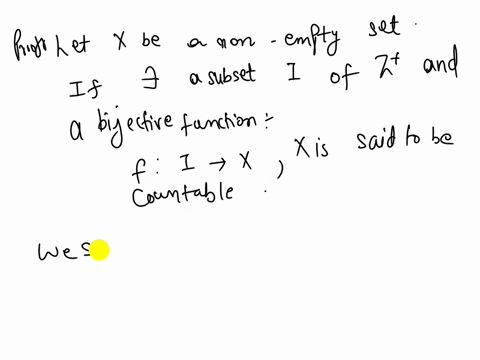 Proof: Let X be a non-empty set.
If ∃ a subset I of Z⁺ and
a bijective function:-
f: I → X, X is said to be
Countable.
We s